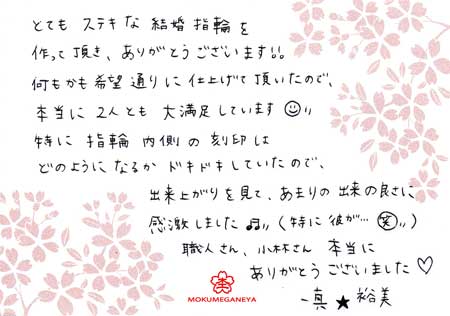 とても ステキな 結婚指輪を
作って頂き、ありがとうございます!!
何もかも希望通りに仕上げて頂いたので、
本当に 2人とも 大満足しています
特に 指輪 内側 の 刻印は
どのようになるか ドキドキしていたので、
出来上がりを見て、あまりの出来の良さに
感激しました♫ (特に彼が… 笑)
職人さん、小林さん 本当に
ありがとうございました♡
MOKUMEGANEYA
-真★裕美